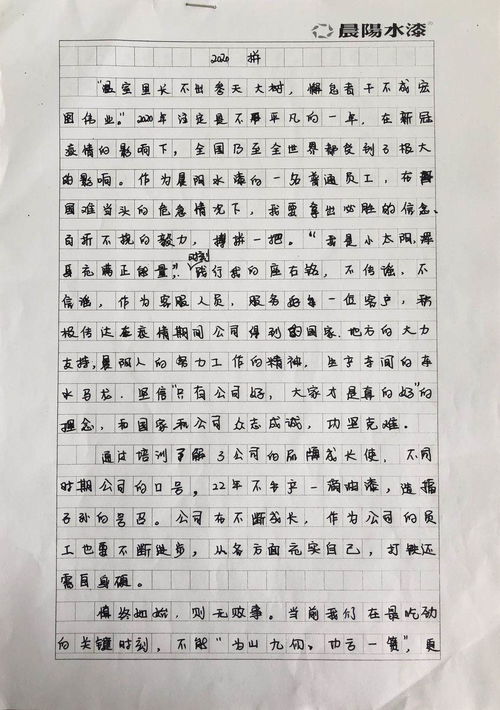 晨陽水漆
2020 拼
“温室里长不出参天大树，懈怠者干不成宏
图伟业。”2020年注定是不平凡的一年，在新冠
疫情的影响下，全国乃至全世界都受到了极大
的影响。作为晨阳水漆的一名普通员工，在
国难当头的危急情况下，我要拿出必胜的信念、
百折不挠的毅力，拼一把。“我是小太阳，浑
身充满正能量”，时刻践行我的座右铭，不传谣，不
信谣，作为客服人员，服务好每一位客户，积
极传达在疫情期间公司得到的国家、地方的大力
支持，晨阳人的努力工作的精神，生产车间的车
水马龙．坚信“只有公司好，大家才是真的好”的
理念，和国家和公司众志成诚，功坚克难。
通过培训了解了公司的成长使，不同
时期公司的口号。22年不生产一滴油漆，造福
子孙的号召。公司在不断成长，作为公司的员
工也要不断进步，从各方面充实自己，打铁还
需自身硬。
慎终如始，则无败事。当前我们在最吃劲
的关键时刻，不能“为山九仞，功亏一篑”，更